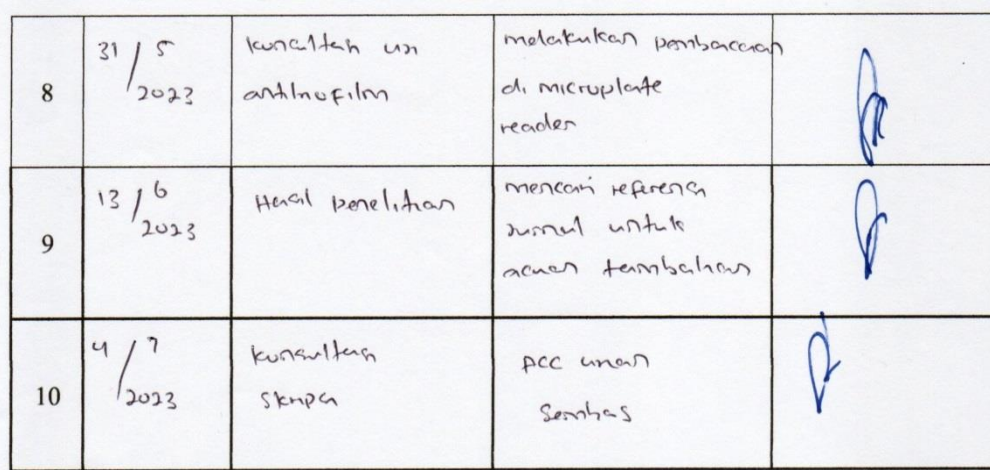 8
31/5
2023
konsultasi uji
antibiofilm
melakukan pembacaan
di microplate
reader
9
13/6
2023
Hasil penelitian
mencari referensi
jurnal untuk
acuan tambahan
10
4/7
2023
konsultasi
skripsi
ACC
Semhas